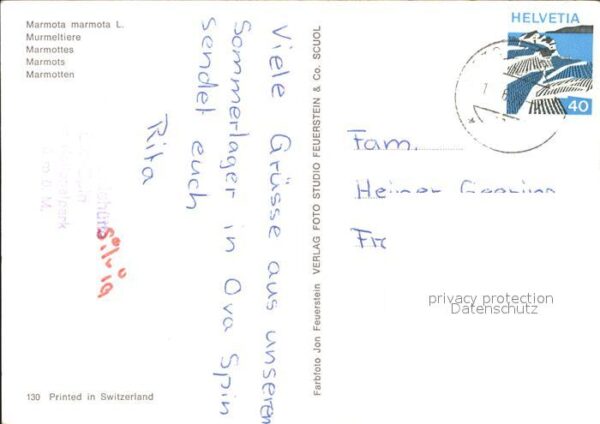 Marmota marmota L.
Murmeltiere
Marmottes
Marmots
Marmotten
Viele Grüsse aus unserem
Sommerlager in Ova Spin
sendet euch
Rita
130 Printed in Switzerland
Farbfoto Jon Feuerstein VERLAG FOTO STUDIO FEUERSTEIN & Co. SCUOL
HELVETIA
40
Fam.
Heiner
privacy protection
Datenschutz